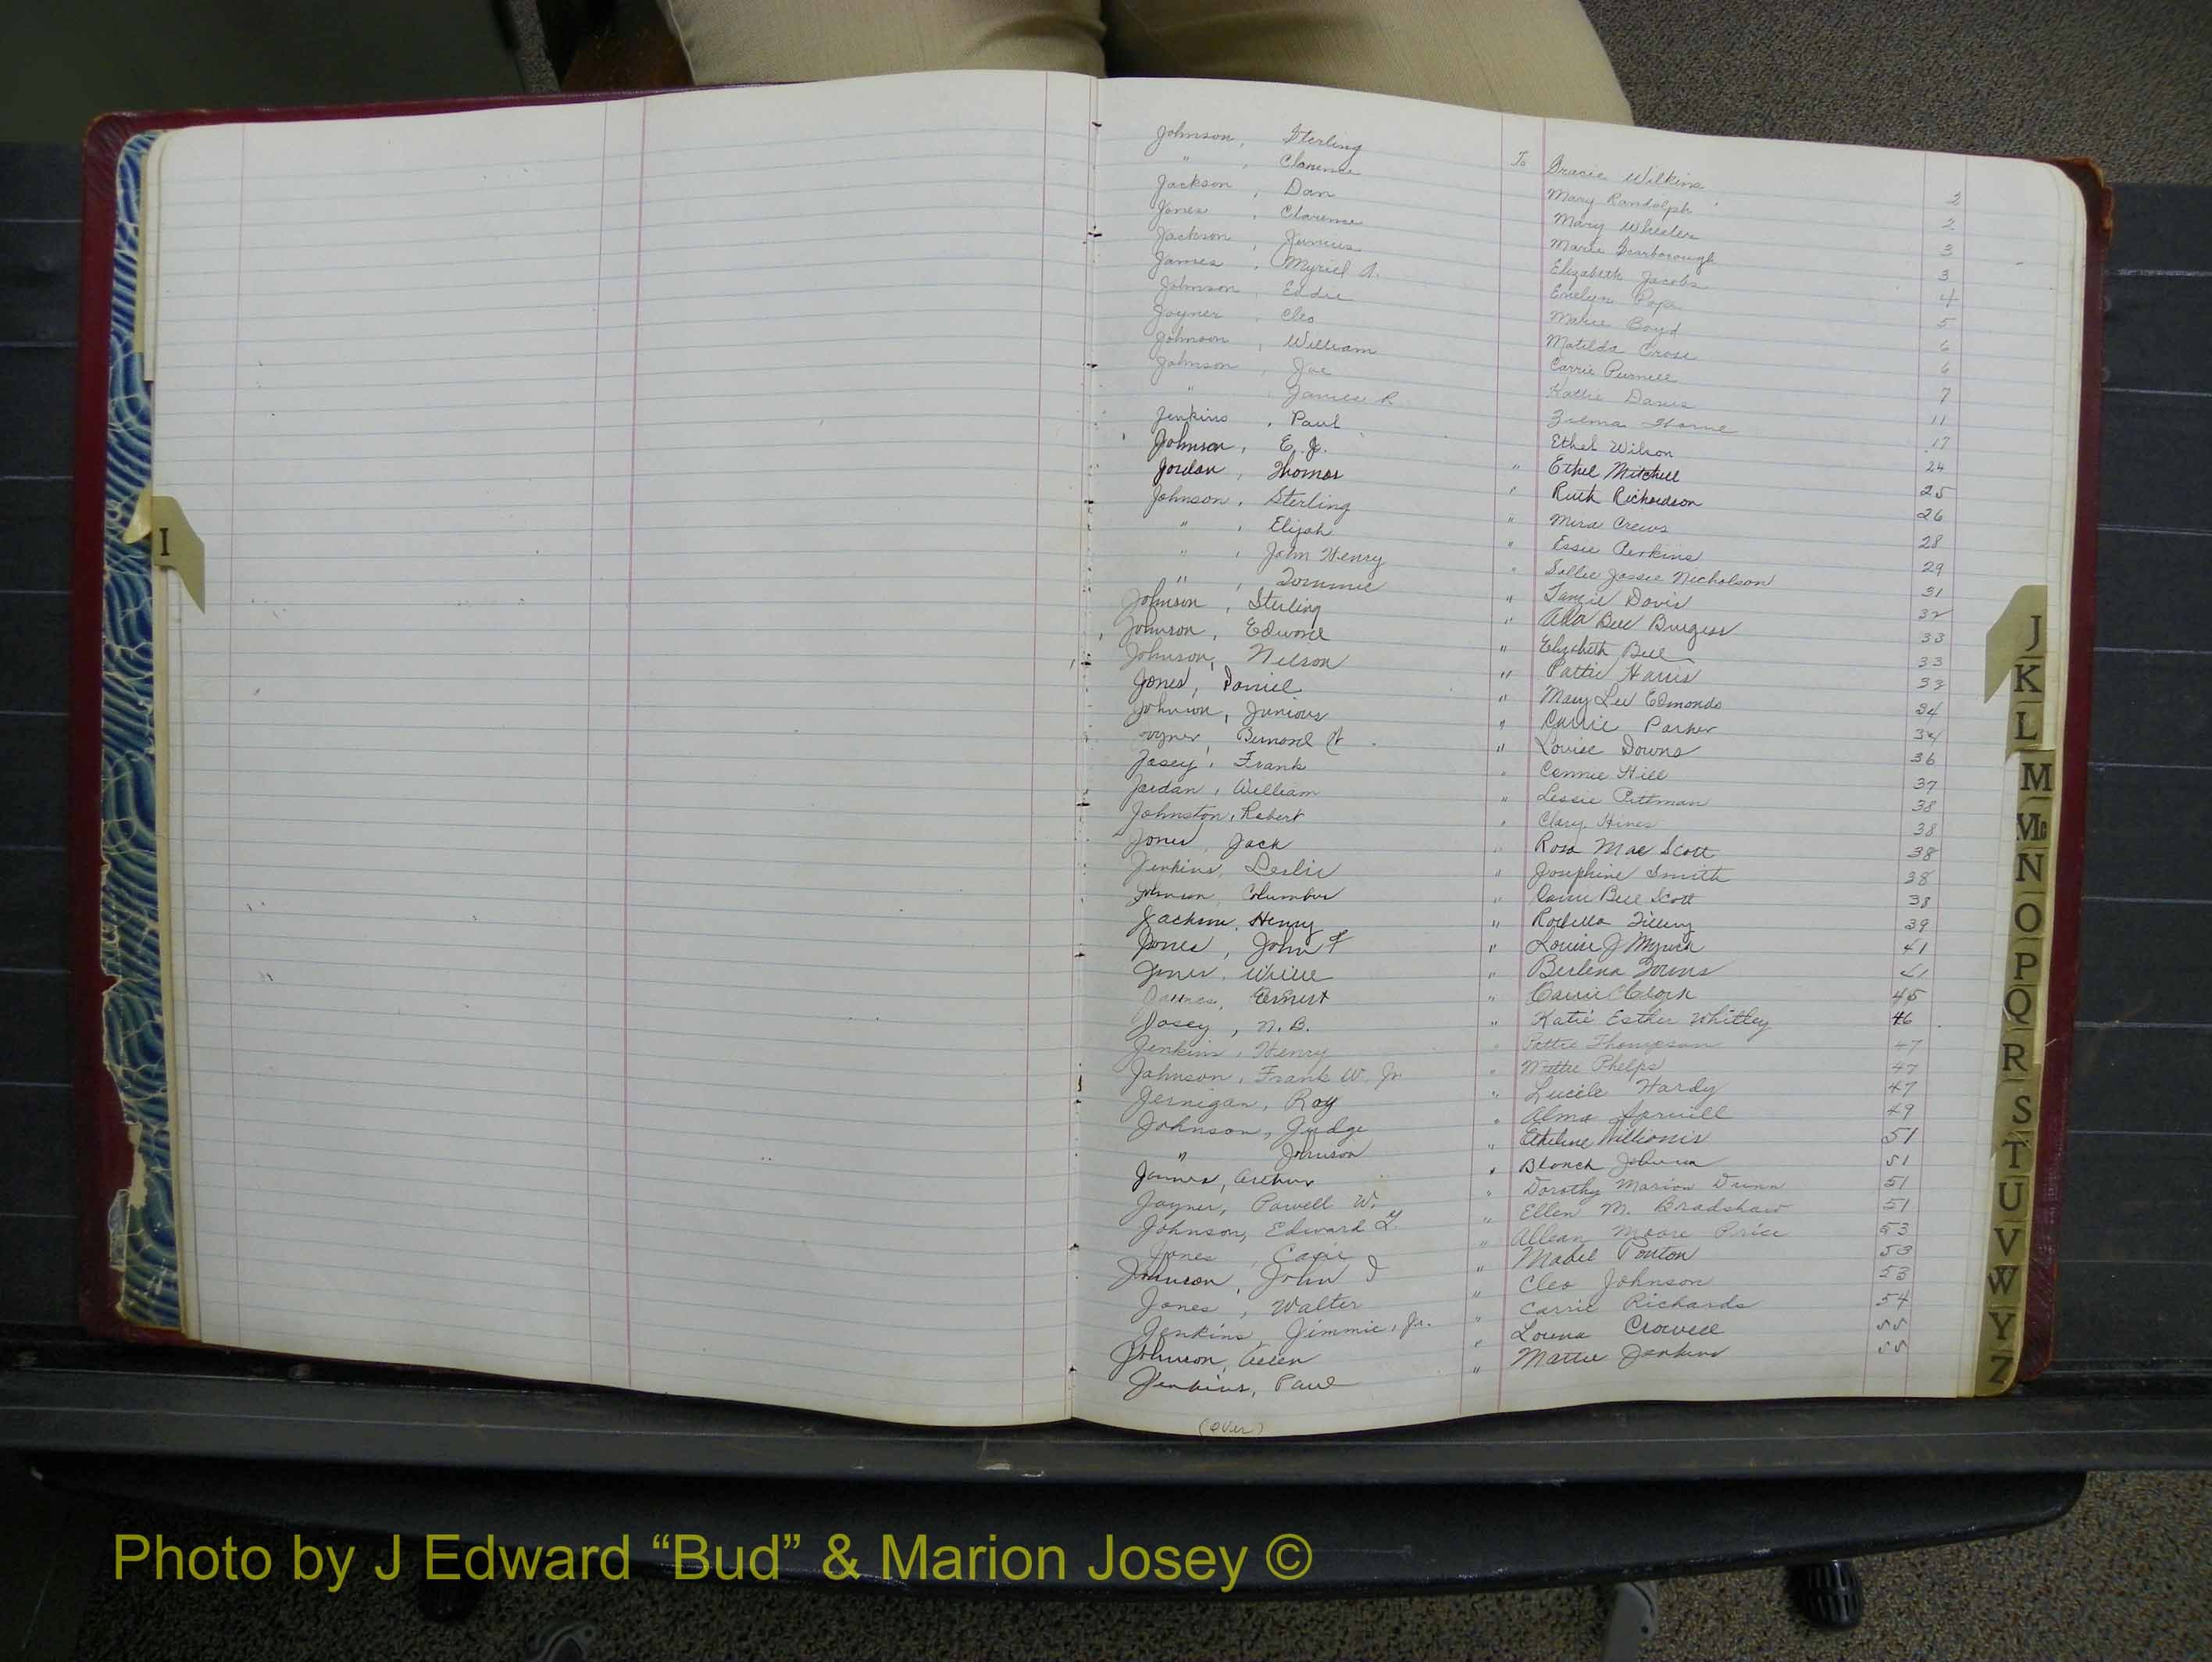 Johnson, Sterling To Gracie Wilkins 2
" , Clarence Mary Randolph 2
Jackson, Dan Mary Wheeler 3
Jones, Clarence Marie Scarborough 3
Jackson, Junius Elizabeth Jacobs 4
James, Myriel A. Evelyn Pope 5
Johnson, Eddie Marie Boyd 6
Joyner, Cleo Matilda Cross 6
Johnson, William Carrie Purnell 7
Johnson, Joe Kattie Davis 11
" James R Zelma Horne 17
Jenkins, Paul Ethel Wilson 24
Johnson, E. J. " Ethel Mitchell 25
Jordan, Thomas " Ruth Richardson 26
Johnson, Sterling " Mira Crews 28
" , Elijah " Essie Perkins 29
" , John Henry " Sallie Jossie Nicholson 31
" , Tommie " Davis 32
Johnson, Sterling " Ada Bell Burgess 33
Johnson, Edward " Elizabeth Bell 33
Johnson, Nelson " Pattie Harris 33
Jones, Daniel " Mary Lee Edmonds 34
Johnson, Junious " Carrie Parker 34
Joyner, Bernard " Louise Downs 36
Josey, Frank " Connie Hill 37
Jordan, William " Lessie Pittman 38
Johnston, Robert " Clary Hines 38
Jones, Jack " Rosa Mae Scott 38
Jenkins, Leslie " Josephine Smith 38
Johnson, Columbus " Bell Scott 38
Jackson, Henry " Rosella Tillery 39
Jones, John F " Louise J Myrick 41
Jones, Willie " Berlena 41
James, Ernest " Carrie Clark 45
Josey, N. B. " Katie Esther Whitley 46
Jenkins, Henry " Pattie Thompson 47
Johnson, Frank W. Jr. " Mattie Phelps 47
Jernigan, Roy " Lucile Hardy 47
Johnson, Judge " Alma Spruill 49
" Johnson " Etheline Williams 51
James, Arthur " Blanch Johnson 51
Joyner, Powell W. " Dorothy Marion Dunn 51
Johnson, Edward L. " Ellen M. Bradshaw 51
Jones, " Allean Moore Price 53
Johnson, John I " Mabel Ponton 53
Jones, Walter " Cleo Johnson 53
Jenkins, Jimmie, Jr. " Carrie Richards 54
Johnson, " Crowell 55
Jenkins, Paul " Mattie Jenkins 55
(over)
I
J
K
L
M
Mc
N
O
P
Q
R
S
T
U
V
W
Y
Z
Photo by J Edward “Bud” & Marion Josey ©